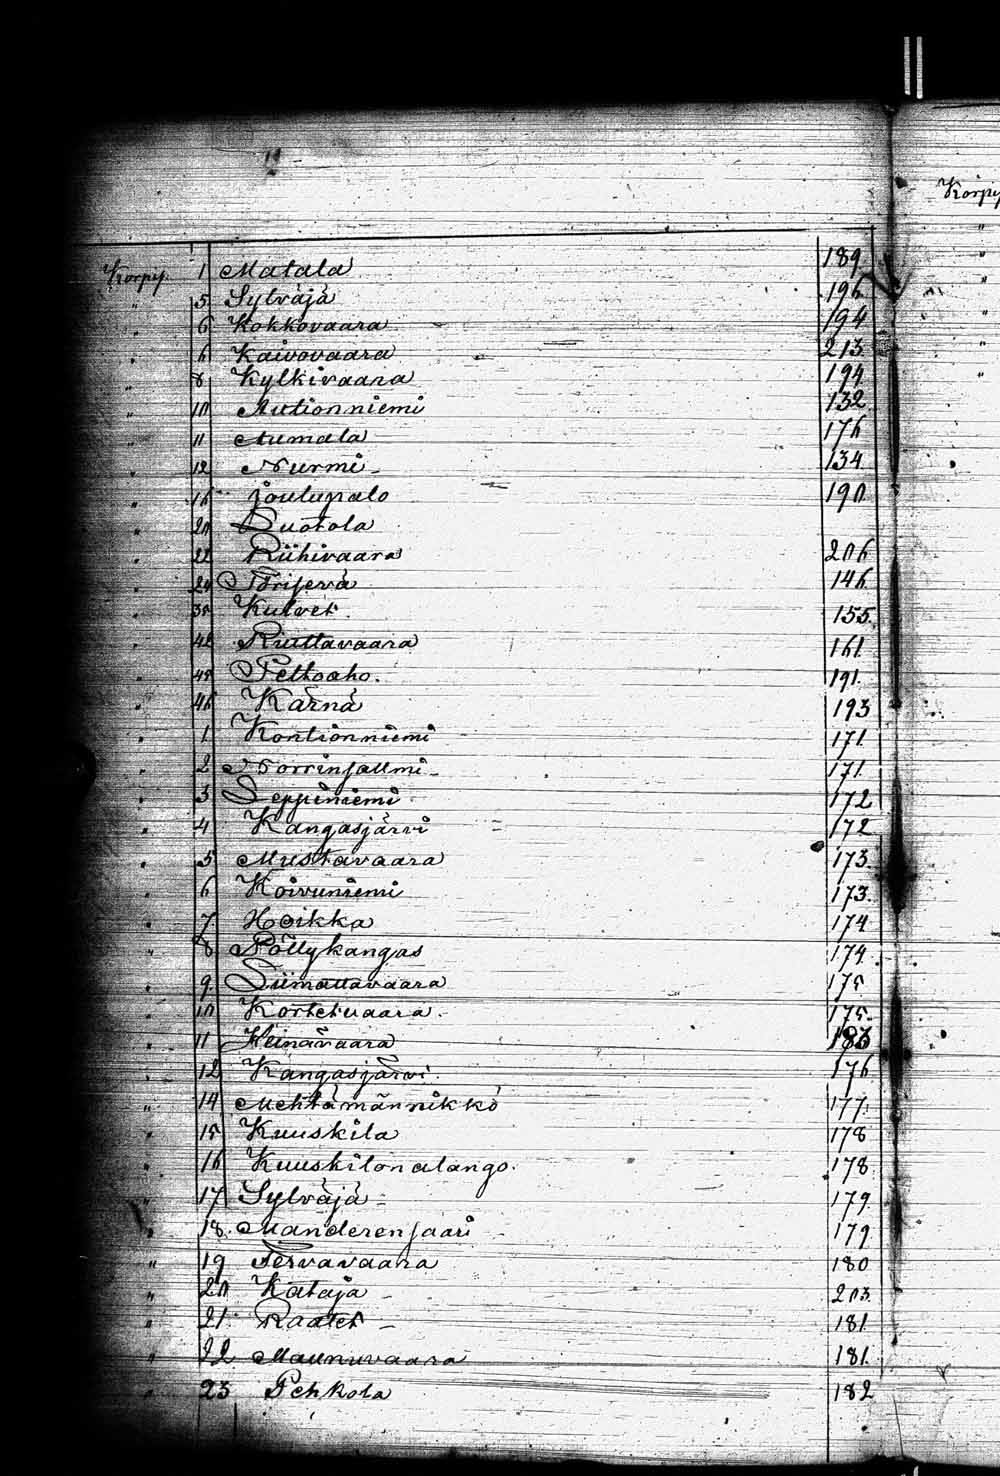 Korpij. 1 Matala 189
" 5 Sylväjä 196
" 6 Kokkovaara 194
" 6 Kaivovaara 213
" 8 Kylkivaara 194
" 10 Autionniemi 132
" 11 Aumala 176
" 12 Nurmi 134
" 16 Joulupalo 190
" 20 Suotola
" 22 Riihivaara 206
" 24 146
" 35 Kulvet 155
" 42 Riuttavaara 161
" 45 Peltoaho. 191
" 46 Kärnä 193
" 1 Kontionniemi 171
" 2 171
" 3 Seppiniemi 172
" 4 Kangasjärvi 172
" 5 Mustavaara 173
" 6 Koivuniemi 173
" 7 Hoikka 174
" 8 Pöllykangas 174
" 9 Siimattavaara 175
" 10 Kortetvaara. 175
" 11 Heinävaara 183
" 12 Kangasjärvi. 176
" 14 Mehtämännikkö 177
" 15 Kuuskila 178
" 16 Kuuskilan alango. 178
" 17 Sylväjä 179
" 18. Manderensaari 179
" 19 Tervavaara 180
" 20 Kataja 203
" 21 Raatet 181
" 22 Maunuvaara 181
" 23 Pehkola 182